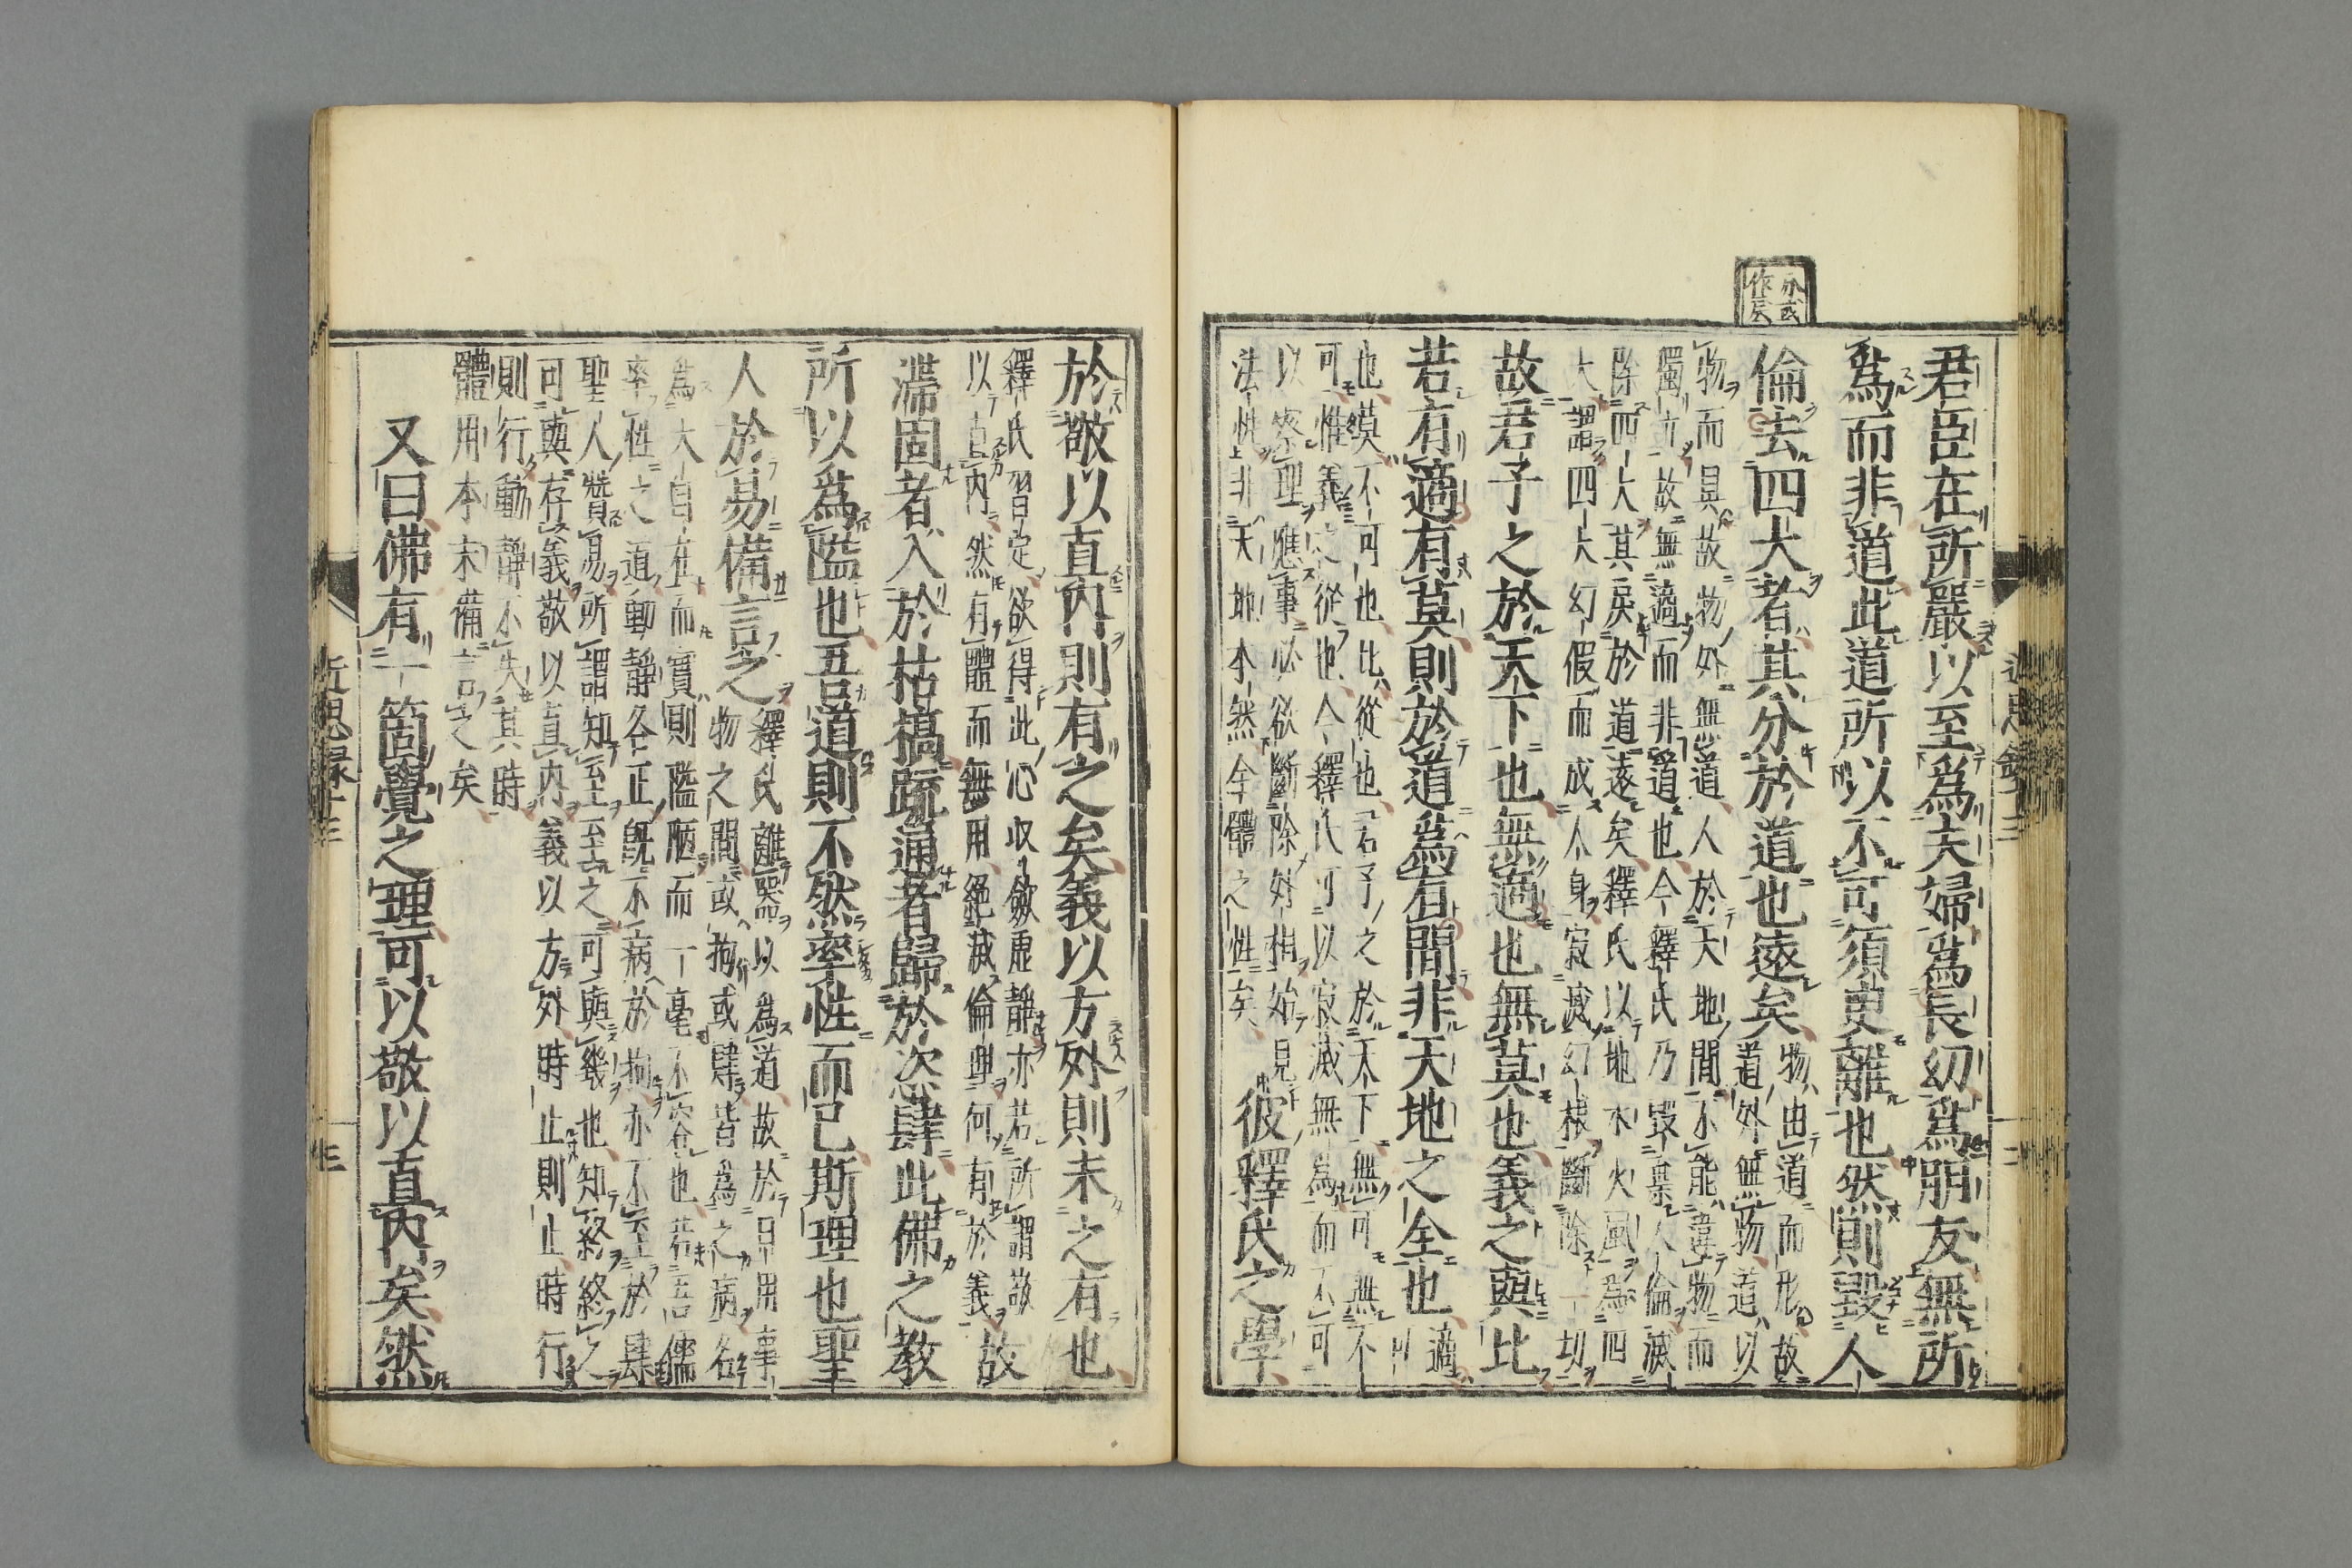 君臣在所嚴以至爲夫婦爲長幼爲朋友無所
爲而非道此道所以不可須臾離也然則毀人
倫去四大者其分於道也遠矣
物由道而形故
道外無物道以
物而具故物外無道人於天地間不能違物而
獨立故無適而非道也今釋氏乃毀棄人倫滅
除四大其戾於道遠矣釋氏以地水火風爲四
大謂四大幻假而成人身寂滅幻根斷除一切
故君子之於天下也無適也無莫也義之與比
若有適有莫則於道爲有間非天地之全也
適
也莫不可也比從也君子之於天下無可無不
可惟義之從也今釋氏可以寂滅無為而不可
以察理應事必欲斷除外相始見
法性非天地本然全體之性矣
彼釋氏之學
分或
作戾
近思錄十三
於敬以直内則有之矣義以方外則未之有也
釋氏習定欲得此心収斂虚靜亦若所謂敬
以直内然有體而無用絶滅倫理何有於義
故
滯固者入於枯槁疏通者歸於恣肆此佛之教
所以爲隘也吾道則不然率性而已斯理也聖
人於易備言之
釋氏離器以為道故於日用事
物之間或拘或肆皆為之病名
爲大自在而實則隘陋而一毫不容也若吾儒
率性之道動靜各正既不病於拘亦不至於肆
聖人贊易所謂知至至之可與幾也知終終之
可與存義敬以直内義以方外時止則止時行
則行動靜不失其時
體用本末備言之矣
又曰佛有一箇覺之理可以敬以直内矣然
近思録十三